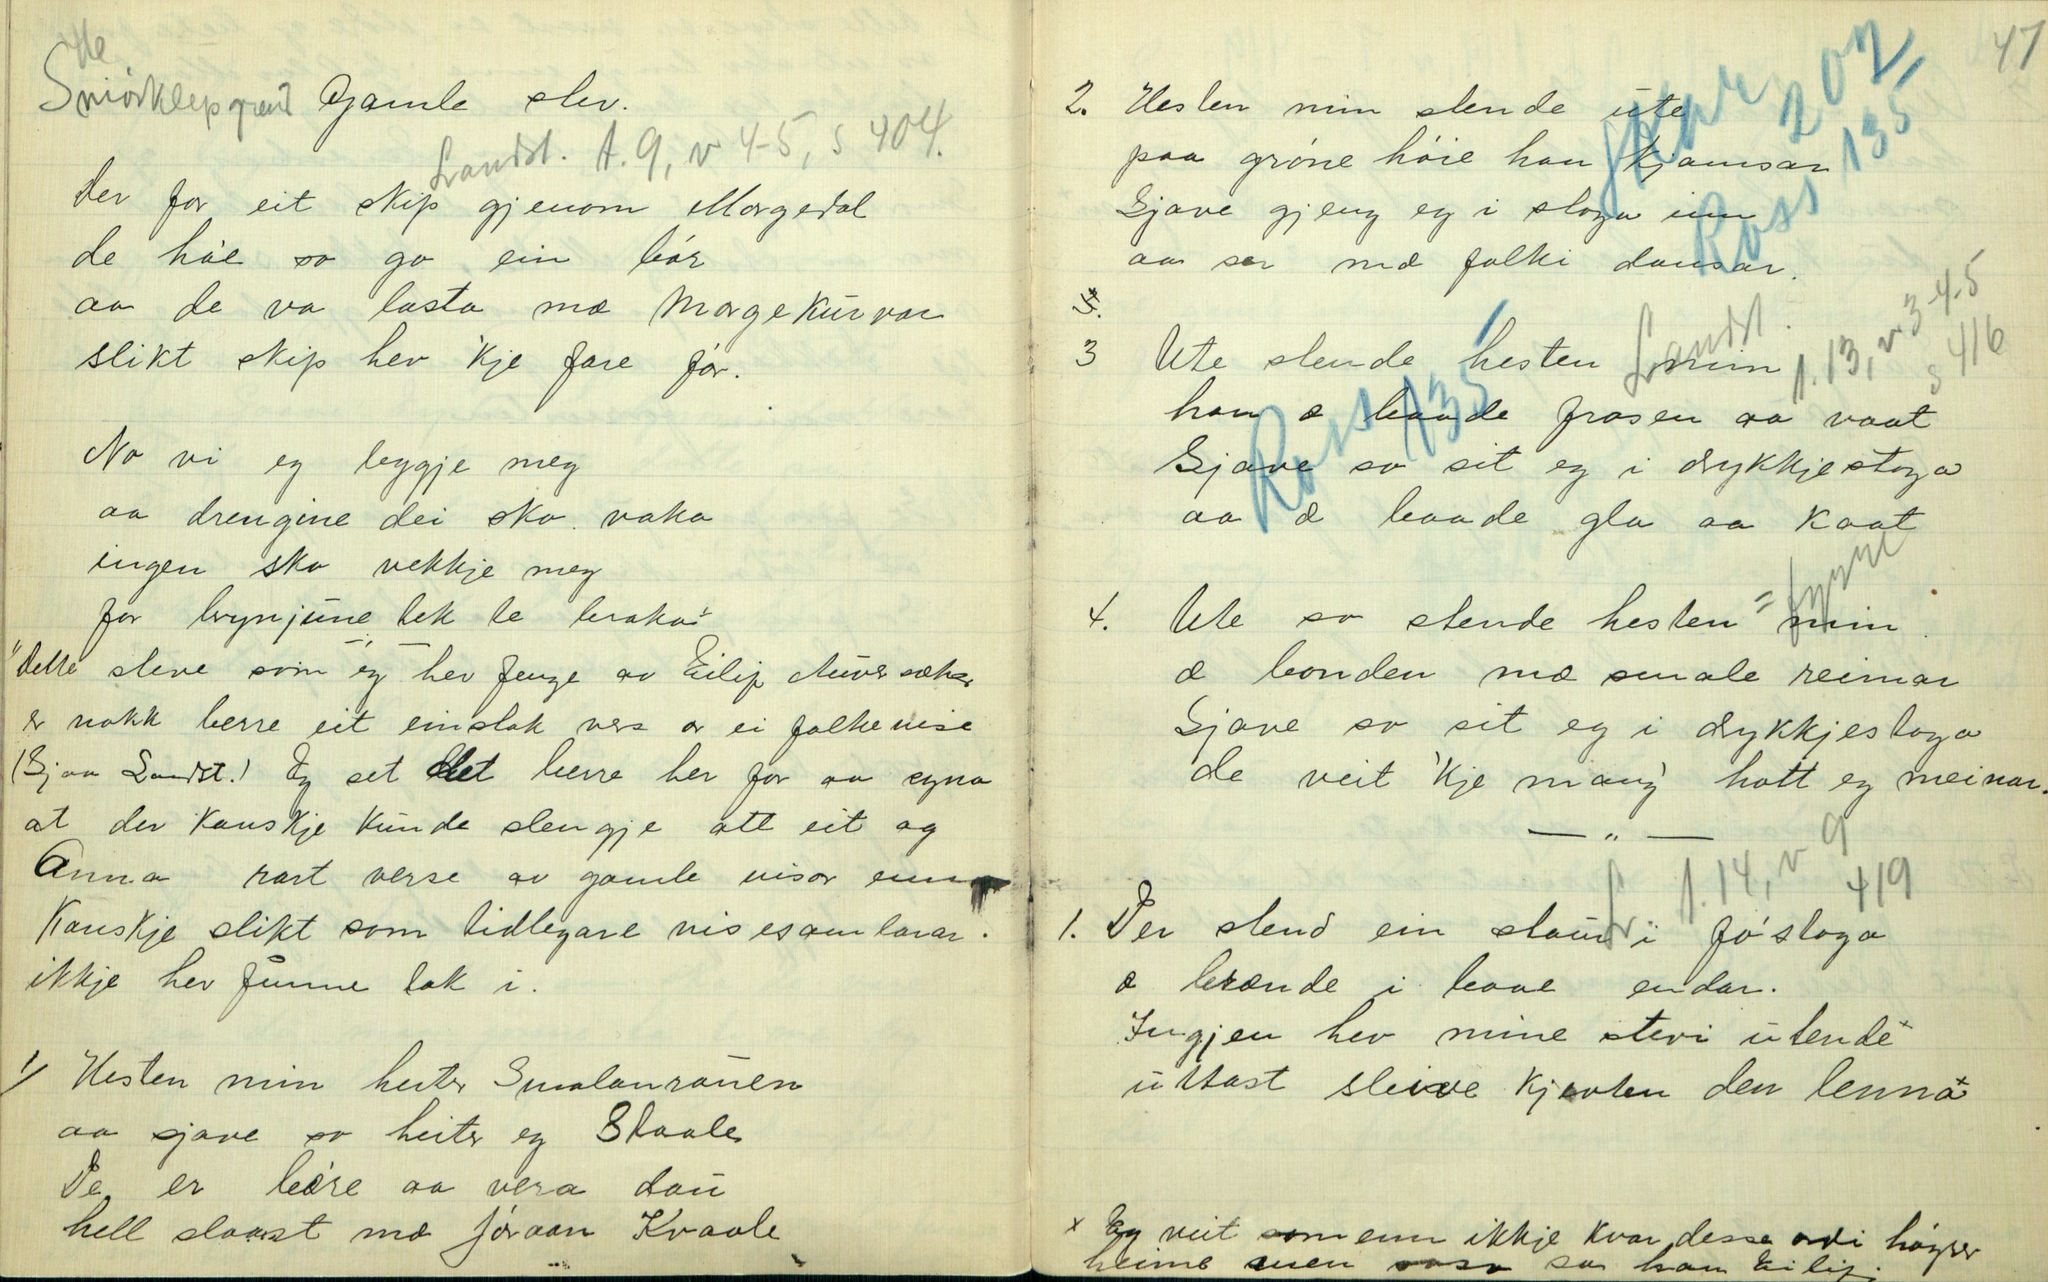 Gamle stev.
Landst. A. 9, v 4-5, s 404.
Der for eit skip gjenom Morgedal
de háe so go ein bör
aa de va lasta mæ Morgekurvar
slikt skip hev 'kje fare för.
No vi eg leggje meg
aa drengine dei sko vaka
ingen sko vekkje meg
for brynjune tek te braka"
"Dette steve som eg hev fenge av Eilif
er nokk berre eit einslak vers or ei folkevise
(Sjaa Landst.) Eg set det berre her for aa syna
at der kanskje kunde slengje att eit og
anna rart verse av gamle visor enno
kanskje slikt som tidlegare visesamlarar
ikkje hev funne tak i.
1) Hesten min heiter Smalanrauen
aa sjave so heiter eg Staale
De er bære aa vera dau
hell slaast mæ Jöraan Kvaale
47
2. Hesten min stende ute
paa gröne höie han kjamsar
Sjave gjeng eg i stoga inn
aa ser mæ folki dansar.
Skar 202,
Ross 135
3 Ute stende hesten min
han æ baade frosen aa vaat
Sjave so sit eg i drykkjestoga
aa æ baade gla aa kaat
Landst. A. 13, v 3-4-5
s 416
Ross 135
4. Ute so stende hesten min
æ bonden mæ smale reimar
Sjave so sit eg i drykkjestoga
de veit 'kje mang' hott eg meinar.
— " —
L. A. 14, v 9
419
1. Der stend ein staur i fóstoga
æ brænde i baae endar.
Ingjen hev mine stevi utende x
uttast sleive kjerten den lenna x
x Eg veit som enn ikkje kvar desse ordi höyrer
heime men so sa han Eilif.